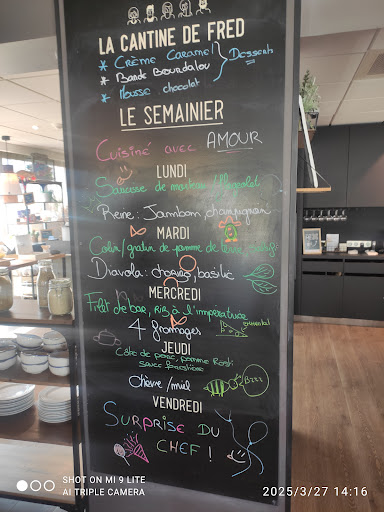 LA CANTINE DE FRED
* Crème Caramel
* Bande Bourdalou
* Mousse chocolat
Desserts
LE SEMAINIER
Cuisiné avec AMOUR
LUNDI
Saucisse de morteau /
Reine : Jambon, champignon
MARDI
Colin/gratin de pomme de terre,
Diavola : chorizo, basilic
MERCREDI
Filet de bar, riz à l'impératrice
4 fromages
JEUDI
Côte de porc, pomme Rosti
sauce forestière
Chèvre/miel
Bzzz
VENDREDI
SURPRISE DU
CHEF !
SHOT ON MI 9 LITE
AI TRIPLE CAMERA
2025/3/27 14:16